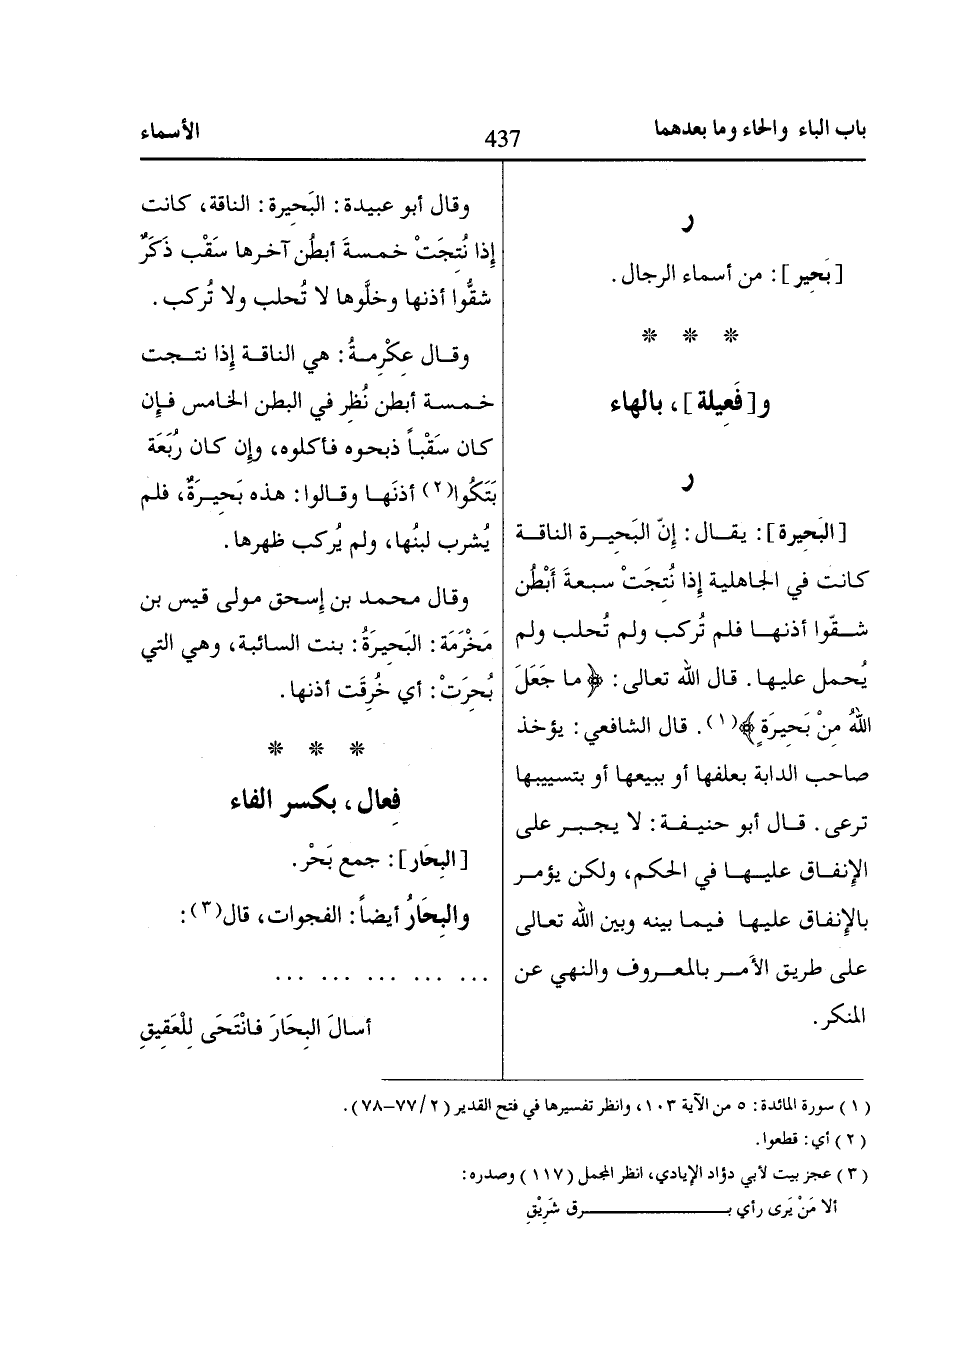 باب الباء والحاء وما بعدهما
437
الأسماء
ر
[بَحِير]: من أسماء الرجال.
* * *
و[فَعِيلة]، بالهاء
ر
[البَحِيرة]: يقال: إِنّ البَحِيرة الناقة
كانت في الجاهلية إِذا نُتِجَتْ سبعةَ أَبْطُن
شقّوا أذنها فلم تُركب ولم تُحلب ولم
يُحمل عليها. قال الله تعالى: ﴿ما جَعَلَ
اللهُ مِنْ بَحيرَةٍ﴾(١). قال الشافعي: يؤخذ
صاحب الدابة بعلفها أو ببيعها أو بتسييبها
ترعى. قال أبو حنيفة: لا يجبر على
الإِنفاق عليها في الحكم، ولكن يؤمر
بالإِنفاق عليها فيما بينه وبين الله تعالى
على طريق الأمر بالمعروف والنهي عن
المنكر.
وقال أبو عبيدة: البَحِيرة: الناقة، كانت
إِذا نُتِجَتْ خمسةَ أبطُن آخرها سَقْب ذَكَرٌ
شقُّوا أذنها وخلَّوها لا تُحلب ولا تُركب.
وقال عِكْرِمةُ: هي الناقة إِذا نتجت
خمسة أبطن نُظِر في البطن الخامس فإِن
كان سَقْباً ذبحوه فأكلوه، وإِن كان رُبَعَة
بَتَكُوا(٢) أذنَها وقالوا: هذه بَحِيرَةٌ، فلم
يُشرب لبنُها، ولم يُركب ظهرها.
وقال محمد بن إِسحق مولى قيس بن
مَخْرَمَة: البَحِيرَةُ: بنت السائبة، وهي التي
بُحرَتْ: أي خُرِقَت أذنها.
* * *
فِعال، بكسر الفاء
[البِحَار]: جمع بَحْر.
والبِحَارُ أيضاً: الفجوات، قال(٣):
... ... ... ... ...
أسالَ البِحَارَ فانْتَحَى لِلْعَقِيقِ
(١) سورة المائدة: ٥ من الآية ١٠٣، وانظر تفسيرها في فتح القدير (٢/ ٧٧-٧٨).
(٢) أي: قطعوا.
(٣) عجز بيت لأبي دؤاد الإِيادي، انظر المجمل (١١٧) وصدره:
ألا مَنْ يَرى رأي بــــــــرق شَرِيْقِ